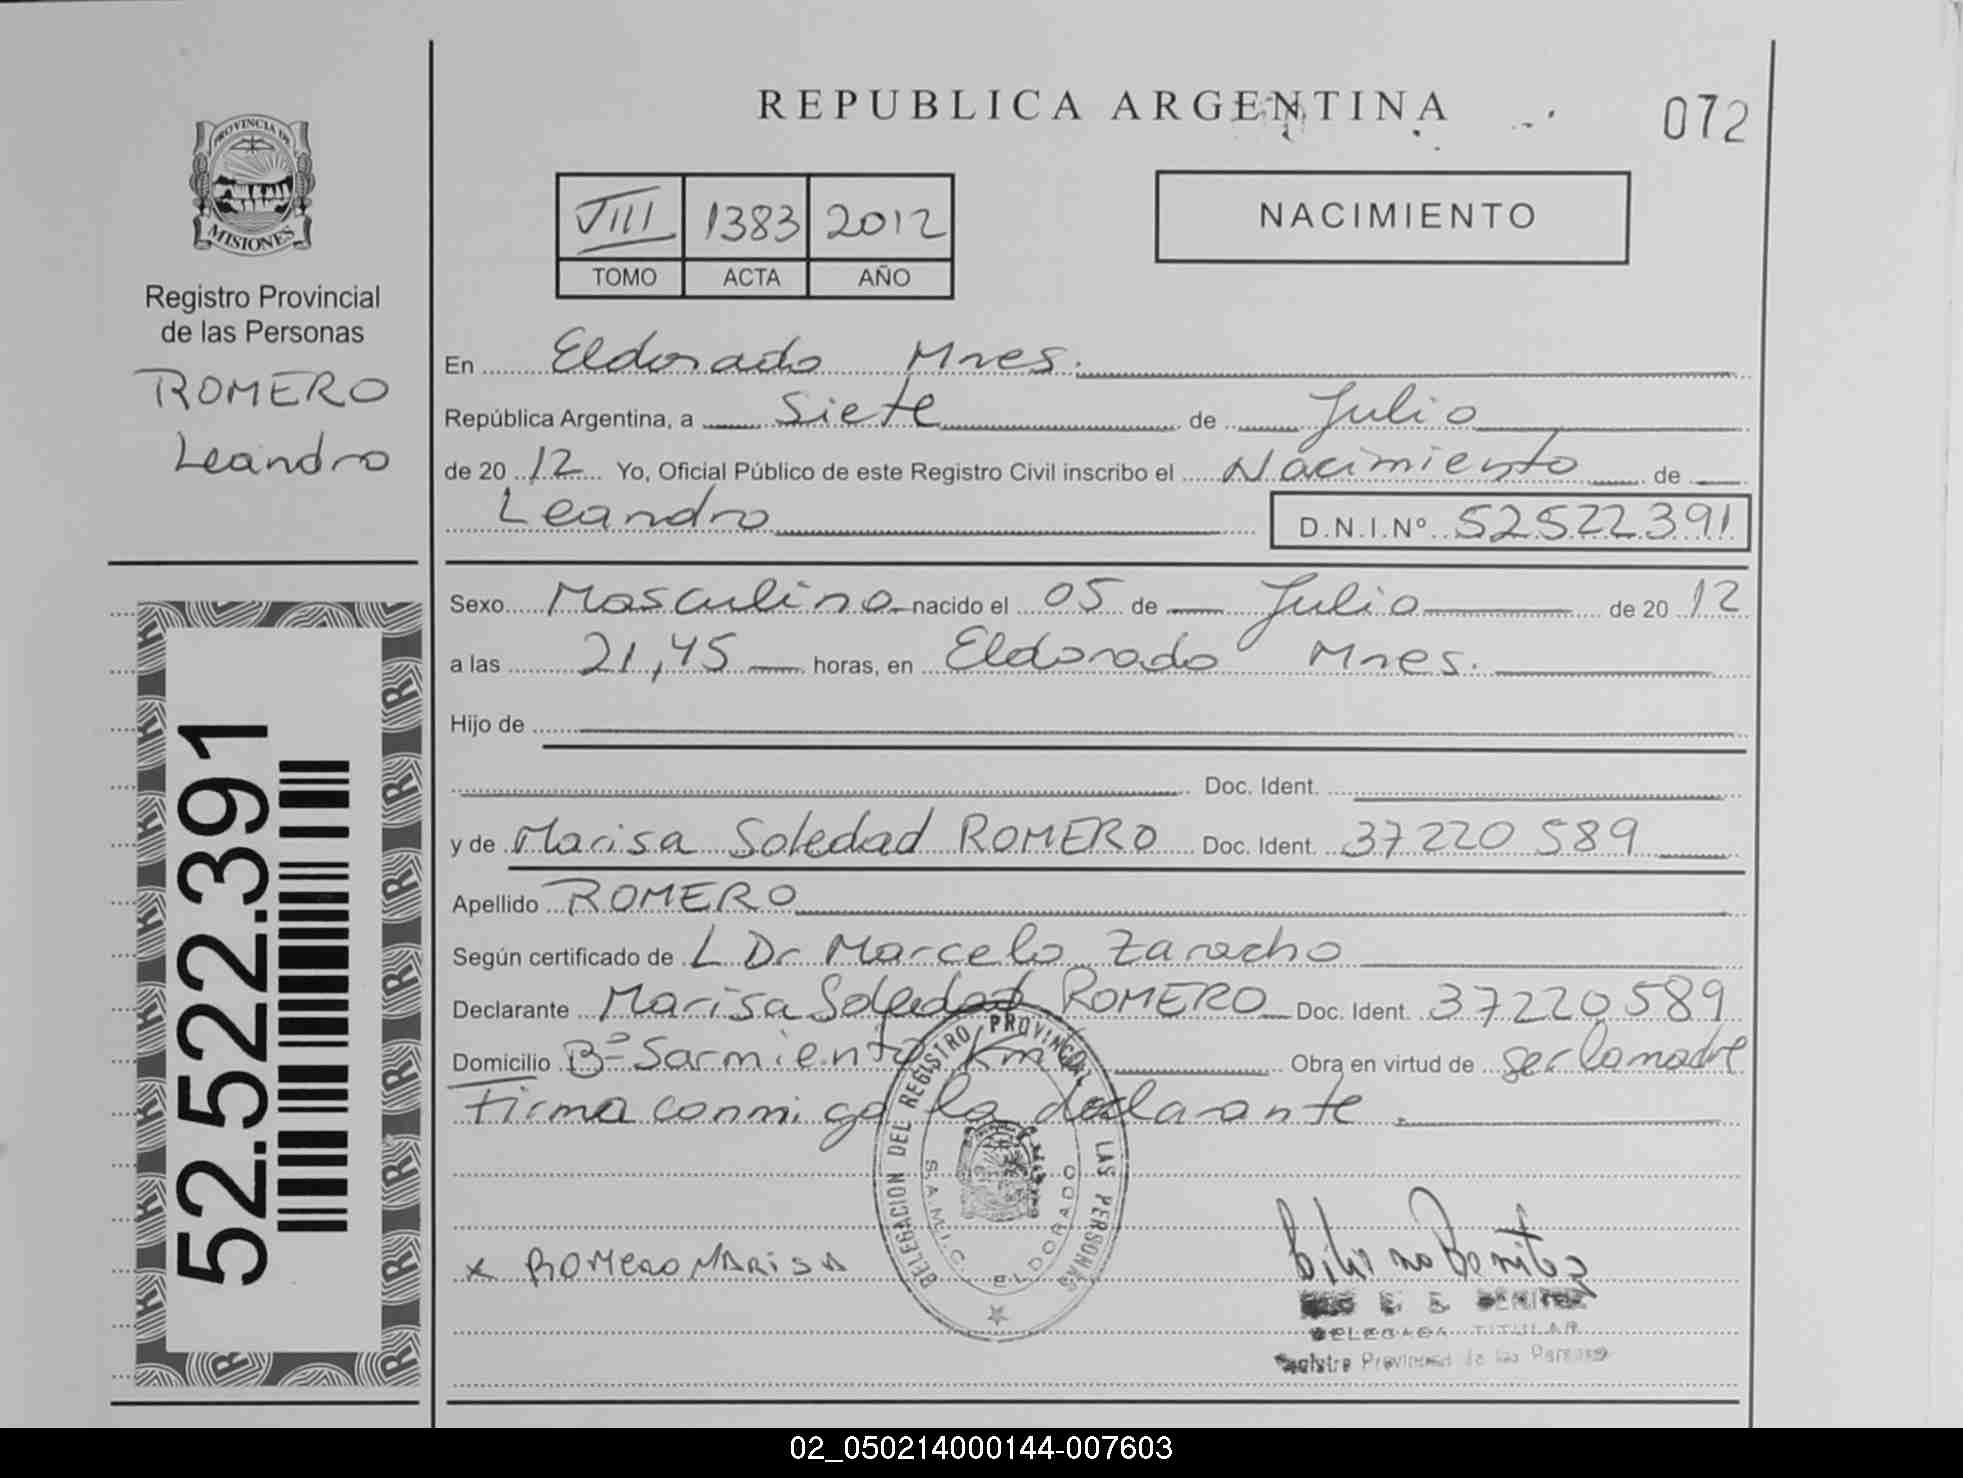 REPUBLICA ARGENTINA
072
PROVINCIA DE
MISIONES
Registro Provincial
de las Personas
ROMERO
Leandro
VIII 1383 2012
TOMO ACTA AÑO
NACIMIENTO
En Eldorado Mnes.
República Argentina, a Siete de Julio
de 20 12 Yo, Oficial Público de este Registro Civil inscribo el Nacimiento de
Leandro D.N.I.Nº 52522391
Sexo Masculino nacido el 05 de Julio de 20 12
a las 21,45 horas, en Eldorado Mnes.
Hijo de
Doc. Ident.
y de Marisa Soledad ROMERO Doc. Ident. 37220589
Apellido ROMERO
Según certificado de L Dr Marcelo Zaracho
Declarante Marisa Soledad ROMERO Doc. Ident. 37220589
Domicilio Bº Sarmiento Km Obra en virtud de ser la madre
Firma conmigo la declarante.
52.522.391
DELEGACION DEL REGISTRO PROVINCIAL LAS PERSONAS
S.A.M.I.C. ELDORADO
x ROMERO MARISA
Benitez
E. BENITEZ
DELEGADA TITULAR
Registro Provincial de las Personas
02_050214000144-007603